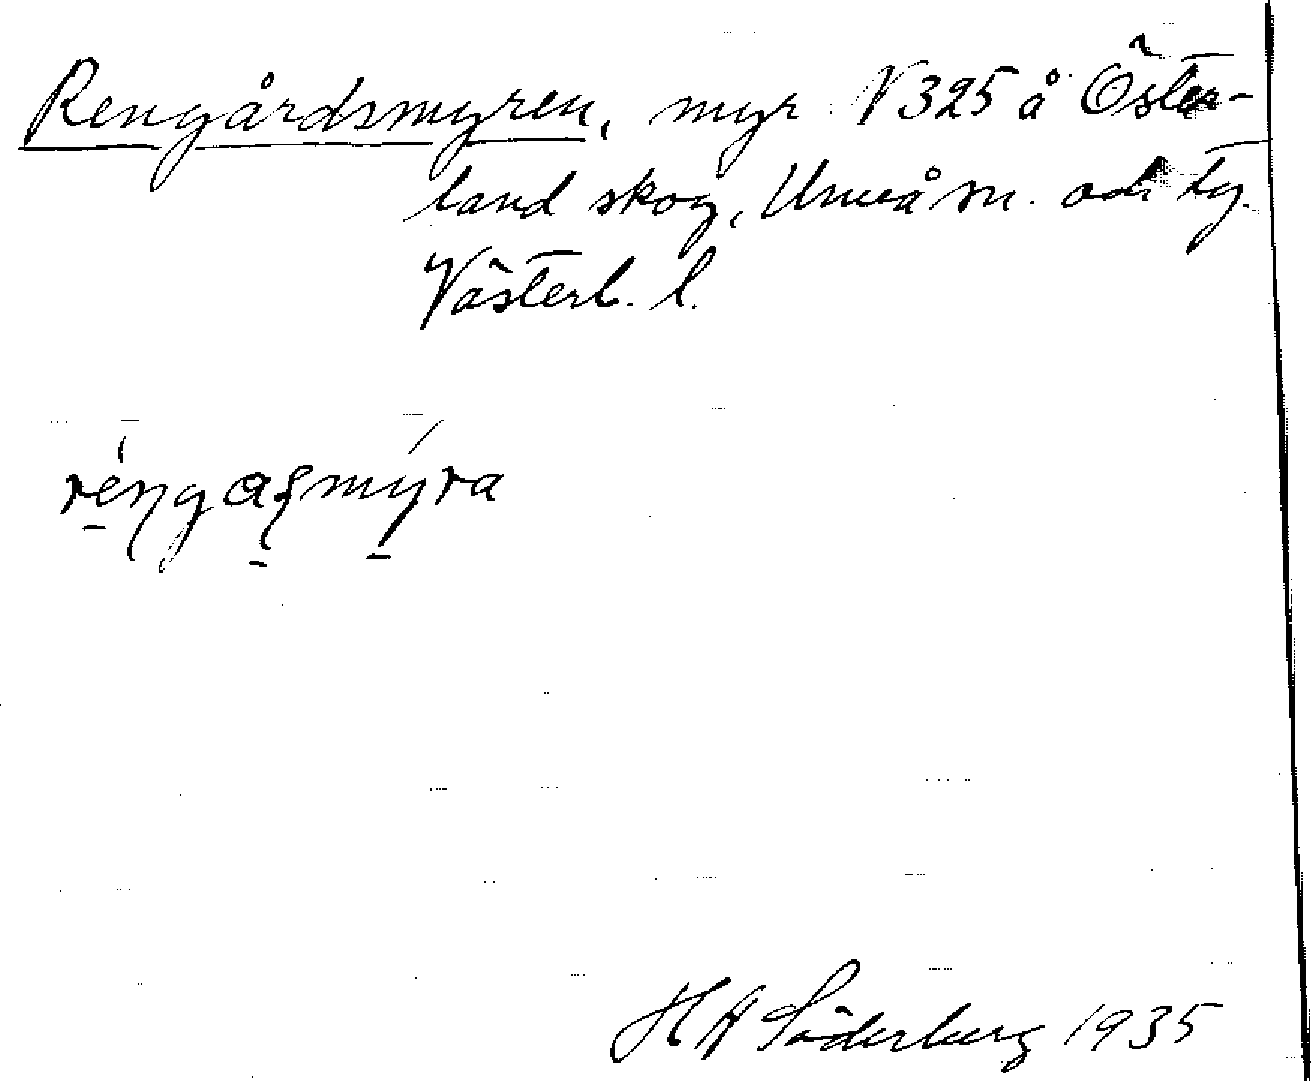 Rengårdsmyren, myr V325 å Öster-
land skog, Umeå sn. och tg.
Västerb. l.
réngasmýra
H A Söderberg 1935